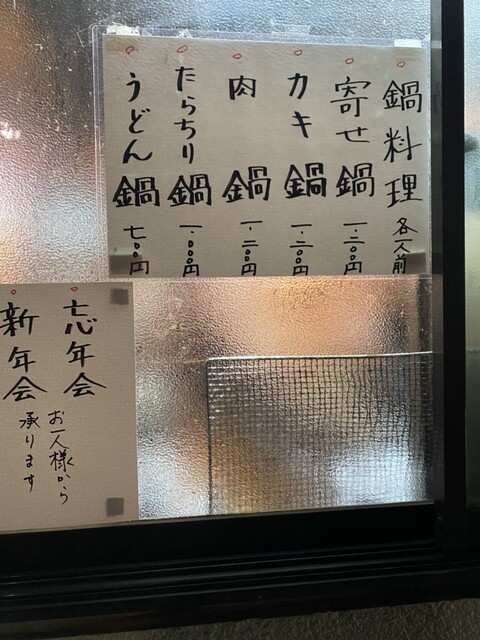 鍋料理 各一人前
寄せ鍋 一.二〇〇円
カキ鍋 一.二〇〇円
肉鍋 一.二〇〇円
たらちり鍋 一.〇〇〇円
うどん鍋 七〇〇円
忘年会
新年会
お一人様から
承ります